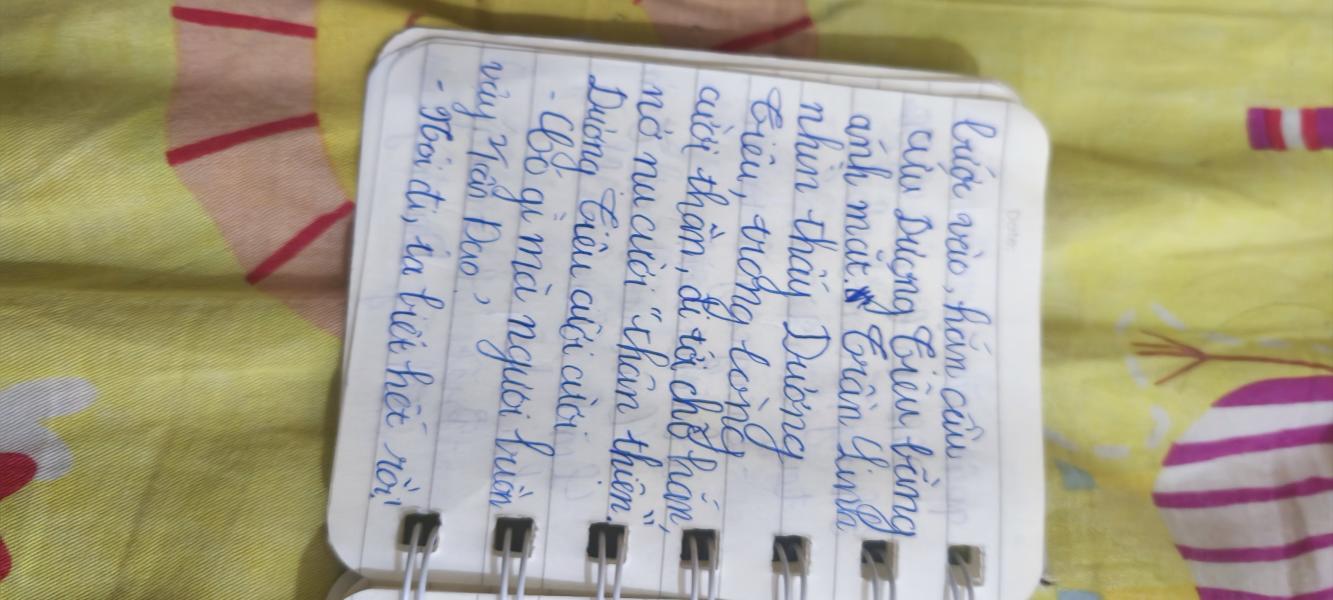 Date:
bước vào, hắn cầu
cứu Dương Tiêu bằng
ánh mắt. Trần Linh
nhìn thấy Dương
Tiêu, trong lòng
cười thầm, đi tới chỗ hắn,
nở nụ cười "thân thiện".
Dương Tiêu cười cười
- Có gì mà ngươi buồn
vậy Trần Đạo,
- Thôi đi, ta biết hết rồi!